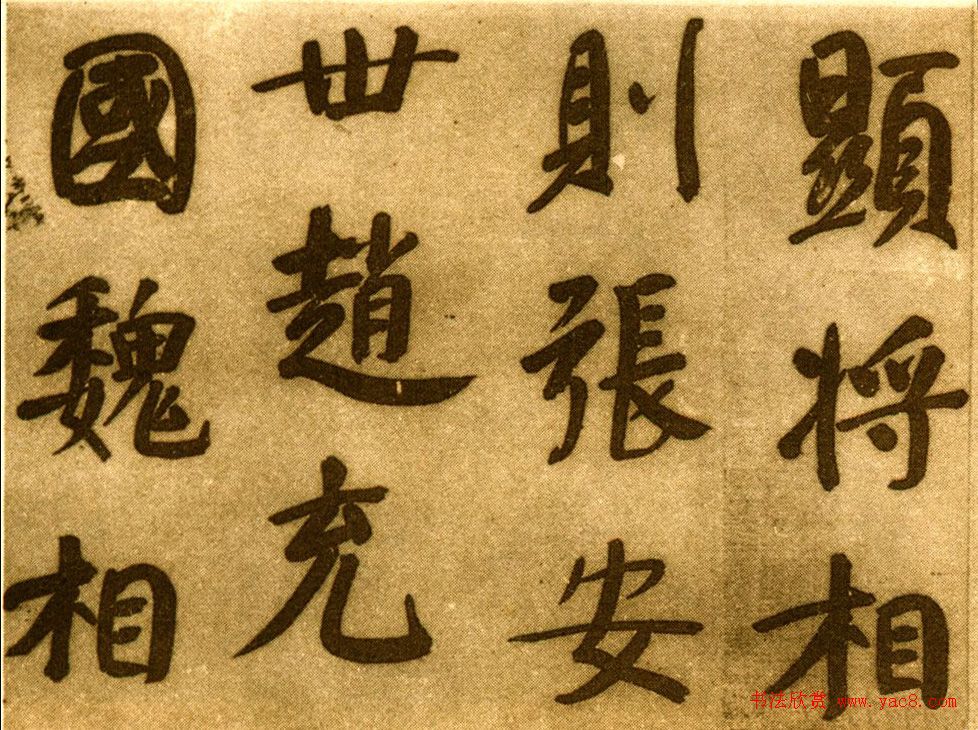 顯將相
則張安
世趙充
國魏相
书法欣赏 www.yac8.com